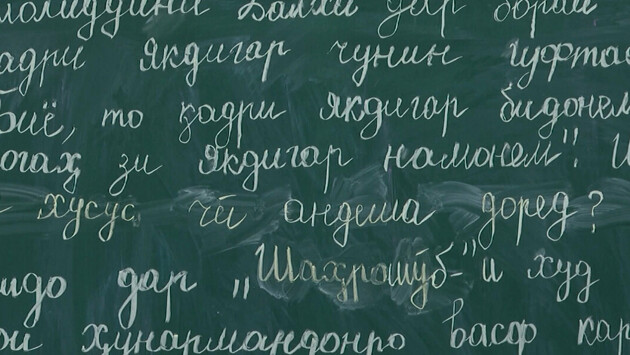 Балхи дар бораи
қадри якдигар чунин гуфта
Биё, то қадри якдигар бидонем
ногаҳ зи якдигар намонем".
хусус чӣ андеша доред?
дар „Шаҳрошӯб-"и худ
ҳунармандонро васф кар